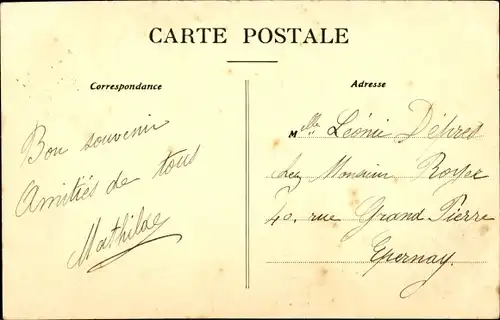 CARTE POSTALE
Correspondance
Bon souvenir
Amitiés de tous
Mathilde
Adresse
Melle Léonie
chez Monsieur Royer
40, rue Grand Pierre
Epernay.